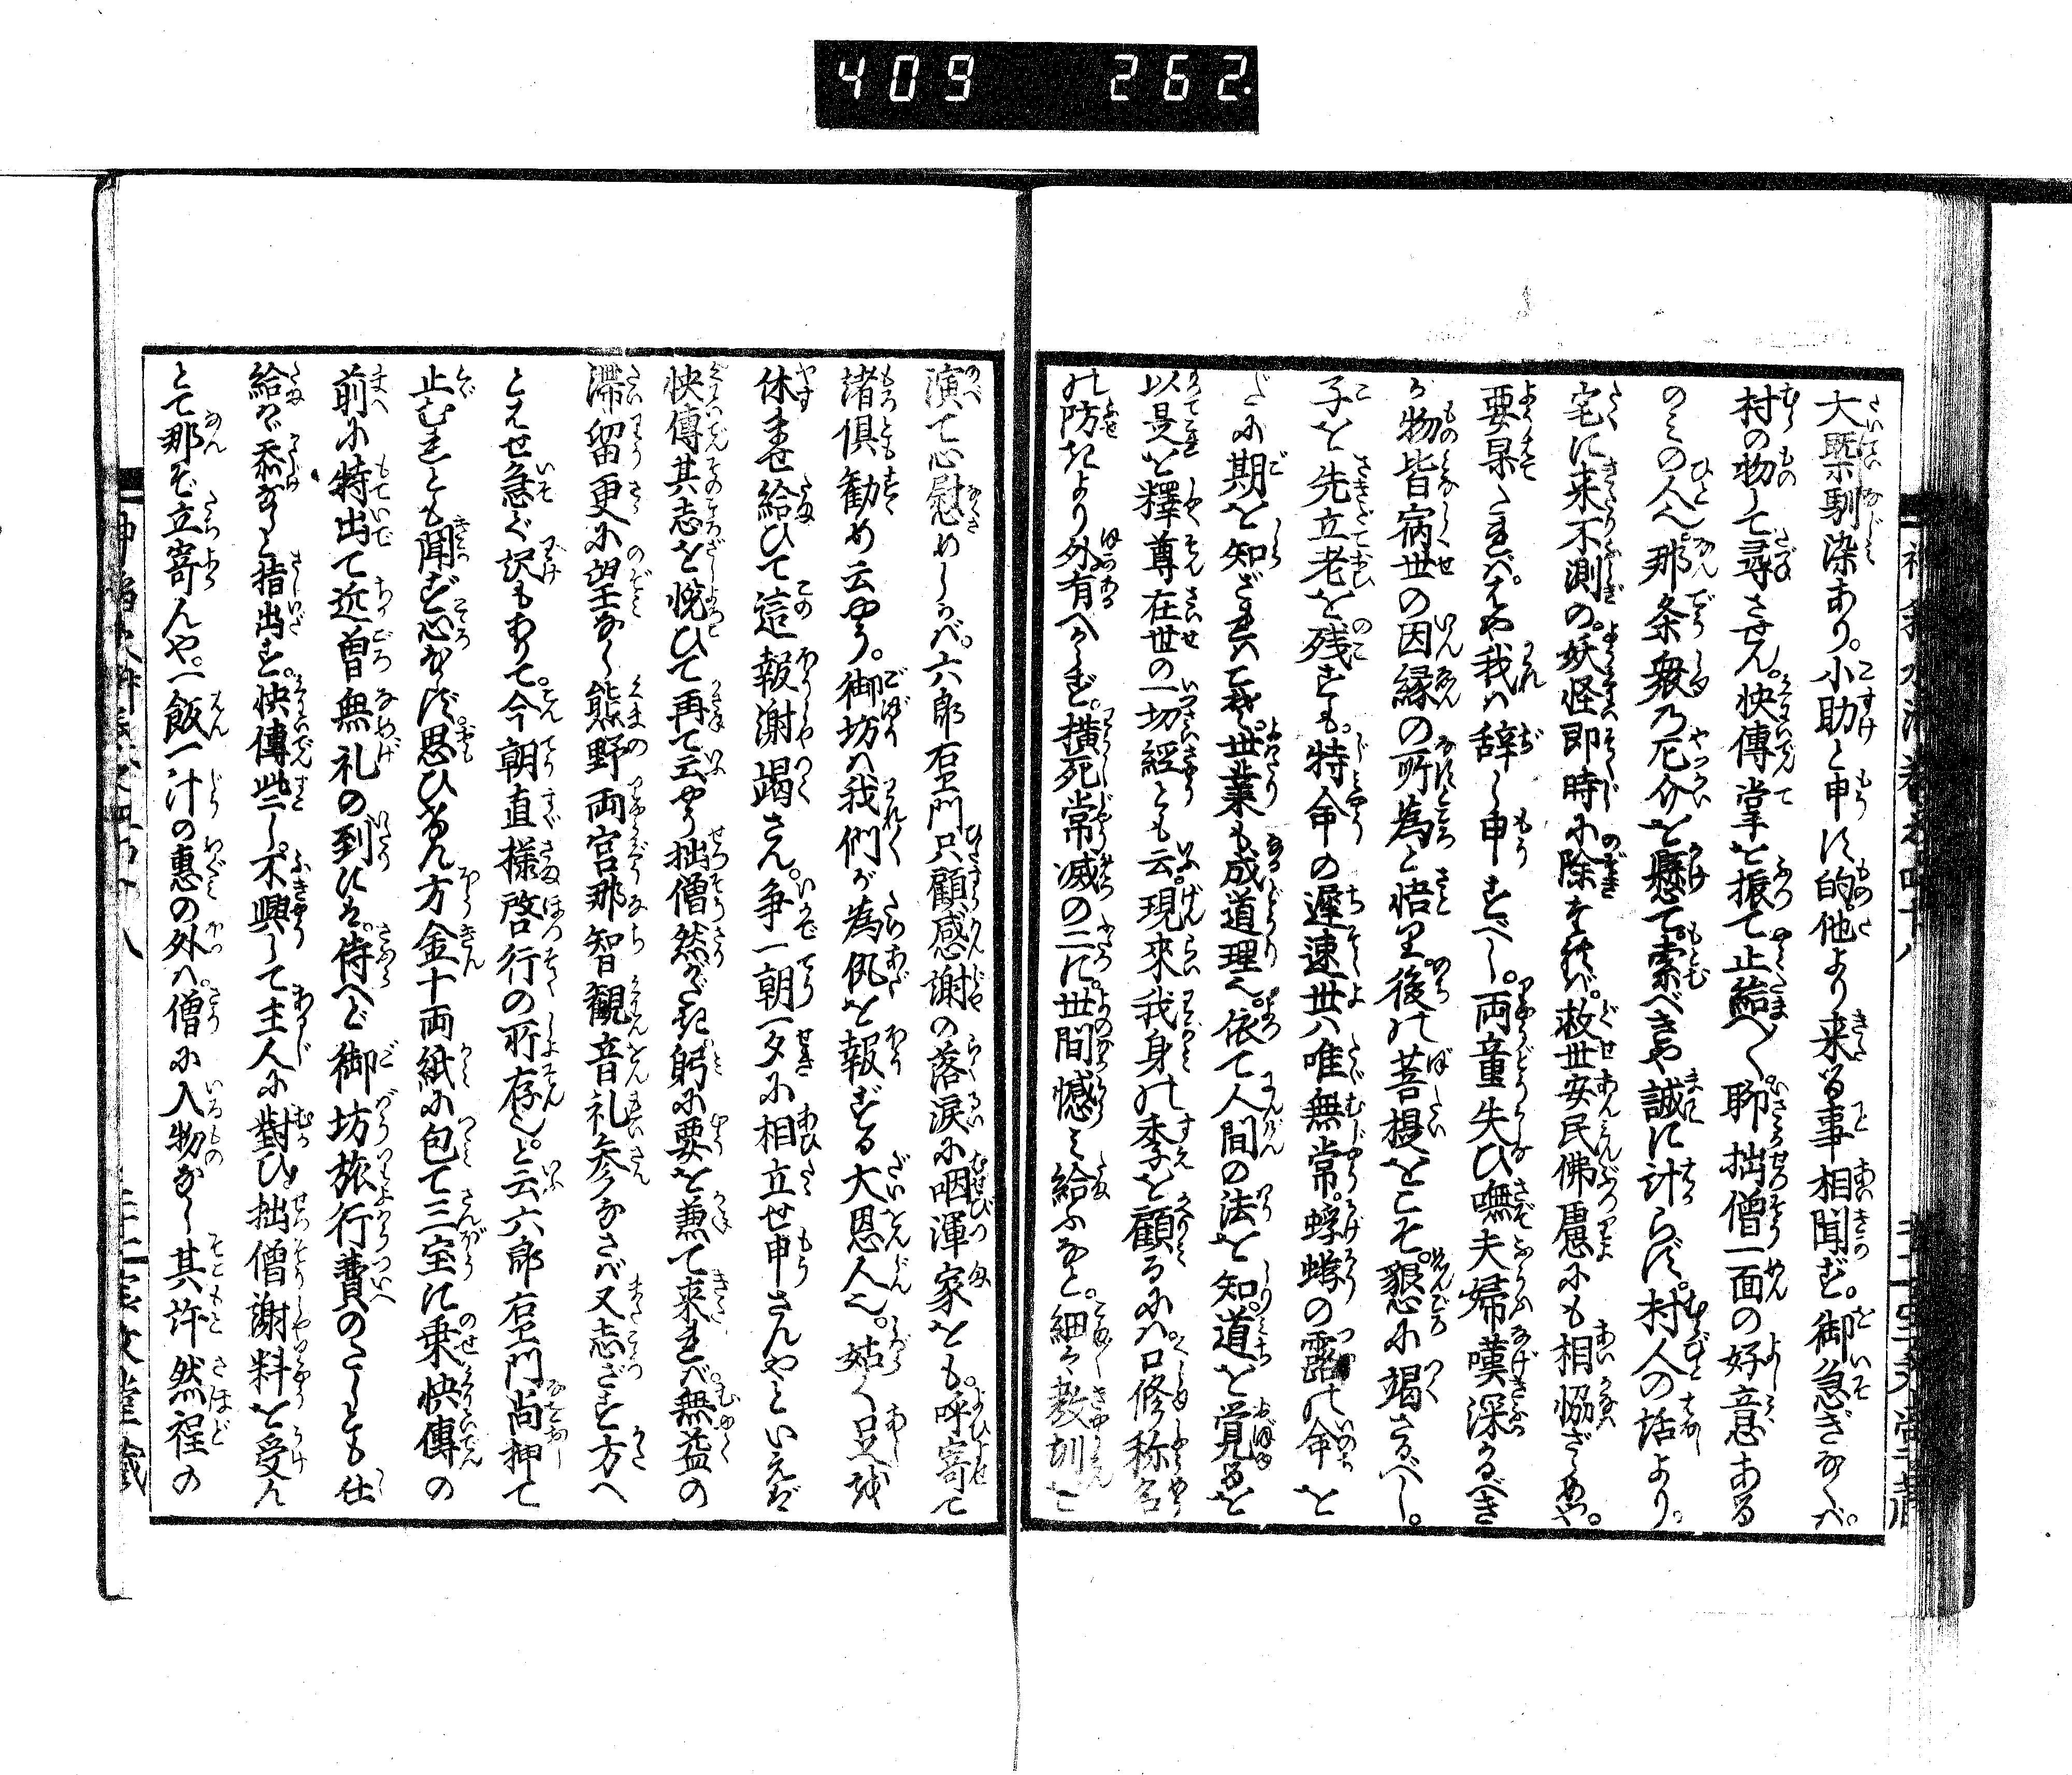 409 262
大槩馴染あり。小助と申に的。他より来る事相聞ず。御急ぎなくバ。
村の物して尋させん。快傳掌を振て止給へ〳〵。聊拙僧一面の好意ある
のミの人也。那条衆乃厄介を懸て。索べきや誠に計らず。村人の話より。
宅に来不測の。妖怪即時に除せバ。救世安民佛慮にも相協ざらめや。
要果たれバ。はや我ハ辞し申すべし。両童失ひ嘸夫婦嘆深かるべき
が物皆病世の因縁の所為と悟里。後の菩提をこそ。懇に竭さるべし。
子を先立老を残すも。特命の遲速世ハ唯無常。蜉蝣の露の命を
だに期を知ざれバこそ。世業も成道理也。依て人間の法を知。道を覚るを
以是を釋尊在世の一切経とも云。現來我身の季を顧るにハ。口修称名
の防ぎより外有べからず。横死常滅の二に。世間憾ミ給ふなと。細々教訓を
演て心慰めしかバ。六郎右エ門只顧感謝の落涙に咽渾家をも。呼寄て
渚俱勧め云やう。御坊ハ我們が為仇を報ずる大恩人也。姑く足を
休させ給ひて這報謝竭さん。争一朝一夕に相立せ申さんやといえば
快傳其志を悦ひて再て云やう拙僧然がたき躬に要を兼て来れバ。無益の
滞留更に望なし熊野両宮那智觀音礼参なさバ又志ざす方へ
とえせ急ぐ訳もありて。今朝直様啓行の所存也。と云六郎右エ門尚押て
止むれとも聞ず心ならず。思ひけん方金十両紙に包て三宝に乗快傳の
前に特出て近曽無礼の到にハ。侍へど御坊旅行費のたしとも仕
給ハバ忝なしと指出す。快傳些し。不興して主人に對ひ拙僧謝料を受ん
とて那ぞ立寄んや。一飯一汁の惠の外ハ。僧に入物なし其許然程の